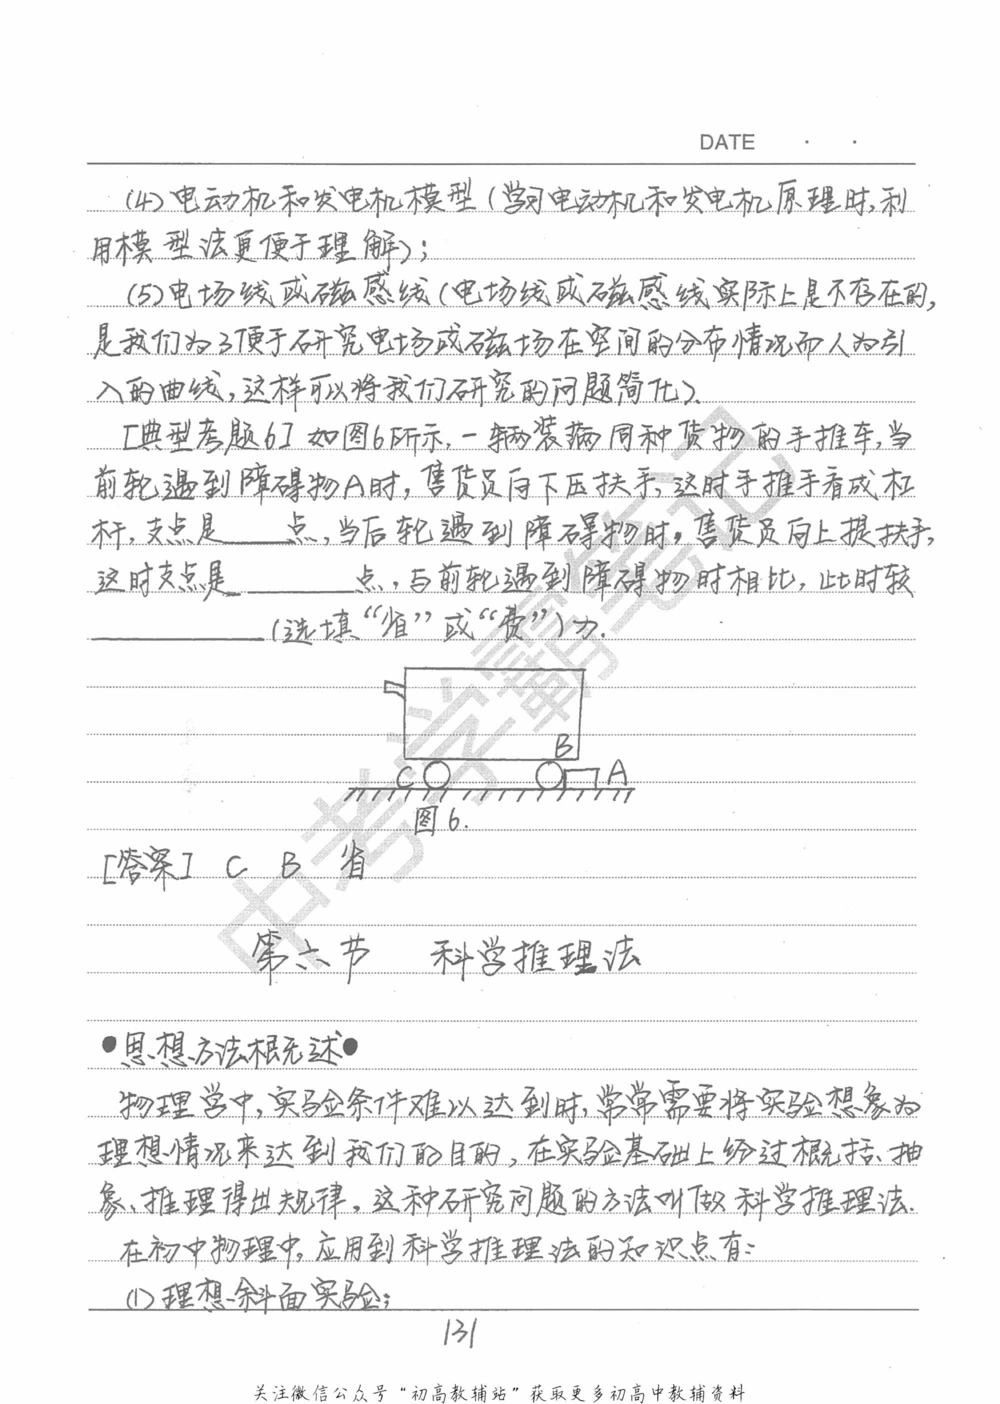 DATE · ·
(4)电动机和发电机模型(学习电动机和发电机原理时,利
用模型法更便于理解);
(5)电场线或磁感线(电场线或磁感线实际上是不存在的,
是我们为了便于研究电场或磁场在空间的分布情况而人为引
入的曲线,这样可以将我们研究的问题简化).
[典型考题6] 如图6所示,一辆装满同种货物的手推车,当
前轮遇到障碍物A时,售货员向下压扶手,这时手推手看成杠
杆,支点是____点,当后轮遇到障碍物时,售货员向上提扶手,
这时支点是________点,与前轮遇到障碍物时相比,此时较
__________(选填“省”或“费”)力.
B
C
A
图6.
[答案] C B 省
第六节 科学推理法
●思想方法概述●
物理学中,实验条件难以达到时,常常需要将实验想象为
理想情况来达到我们的目的,在实验基础上经过概括、抽
象、推理得出规律,这种研究问题的方法叫做科学推理法.
在初中物理中,应用到科学推理法的知识点有:
(1)理想斜面实验;
131
关注微信公众号“初高教辅站”获取更多初高中教辅资料
中考学霸笔记